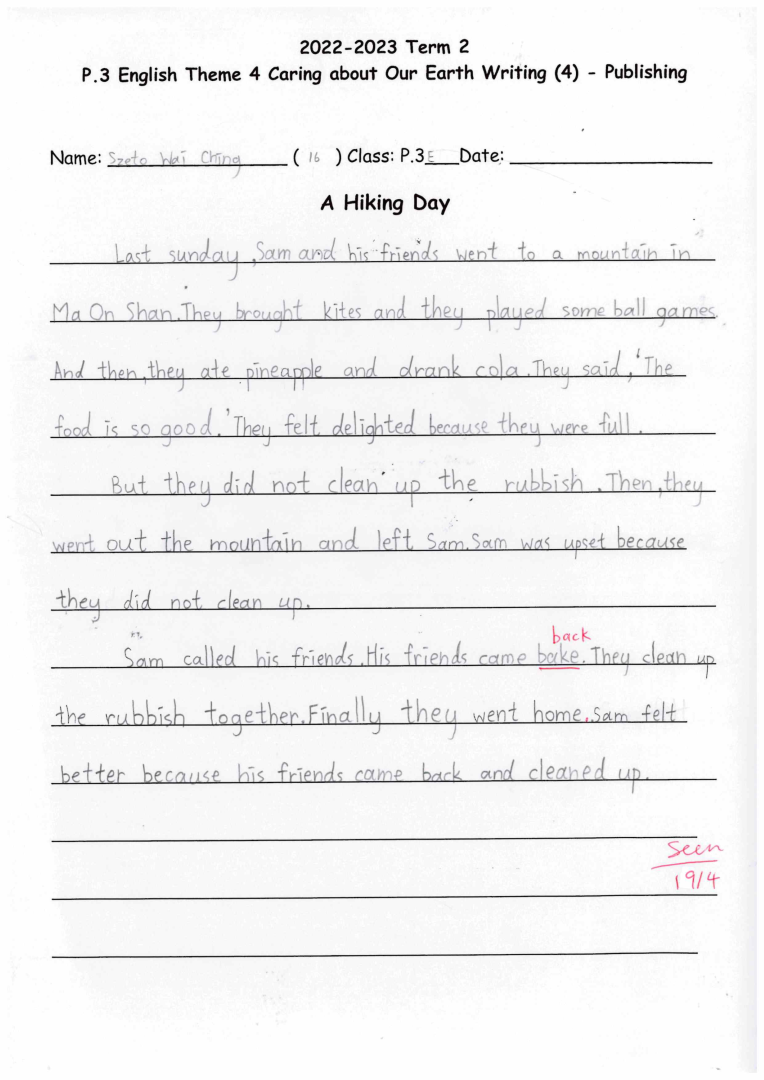 2022-2023 Term 2
P.3 English Theme 4 Caring about Our Earth Writing (4) - Publishing
Name: Szeto Wai Ching ( 16 ) Class: P.3E Date:
A Hiking Day
Last sunday, Sam and his friends went to a mountain in
Ma On Shan. They brought kites and they played some ball games.
And then, they ate pineapple and drank cola. They said, 'The
food is so good.' They felt delighted because they were full.
But they did not clean up the rubbish. Then, they
went out the mountain and left Sam. Sam was upset because
they did not clean up.
back
Sam called his friends. His friends came bake. They clean up
the rubbish together. Finally they went home. Sam felt
better because his friends came back and cleaned up.
Seen
19/4